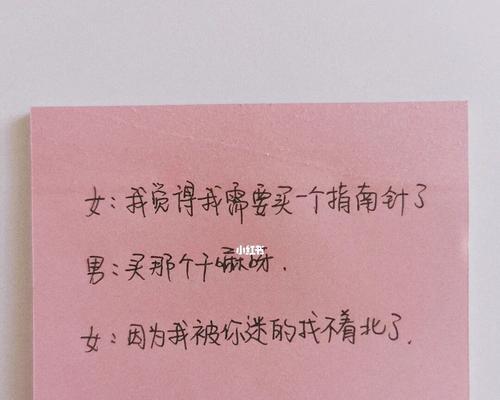 女：我觉得我需要买一个指南针了
小红书
男：买那个干嘛呀.
女：因为我被你迷的找不着北了.